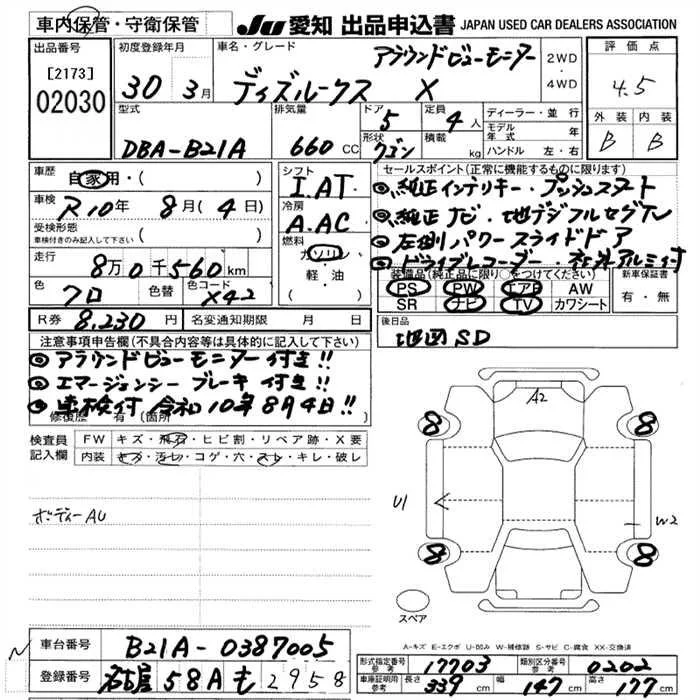 車内保管・守衛保管 JU 愛知 出品申込書 JAPAN USED CAR DEALERS ASSOCIATION
出品番号 [2173] 02030
初度登録年月 30年 3月
車名・グレード アラウンドビューモニター
デイズルークス X
2WD・4WD
評価点 4.5
外装 B 内装 B
型式 DBA-B21A
排気量 660 CC
ドア 5
形状 ワゴン
定員 4人
積載 kg
ディーラー・並行
モデル年式 年
ハンドル 左・右
車歴 自家用・( )
車検 R10年 8月(4日)
受検形態 車検付きのみ記入して下さい ( )
走行 8万0千560km
色 クロ 色替 色コード X42
R券 8,230円 名変通知期限 月 日
シフト I.AT
冷房 A.AC
燃料 ガソリン 軽・油
セールスポイント(正常に機能するものに限ります)
◎純正インテリキー・プッシュスタート
◎純正ナビ・地デジフルセグTV
◎左側パワースライドドア
◎ドライブレコーダー・社外アルミ付
装備品(純正品に限り○をつけてください)
PS PW エアB AW
SR ナビ TV カワシート
新車保証書 有・無
後日品 地図SD
注意事項申告欄(不具合内容等は具体的に記入して下さい)
◎アラウンドビューモニター付き!!
◎エマージョンシーブレーキ付き!!
◎車検付 令和10年8月4日!!
修復歴 有(箇所
検査員記入欄
FW キズ・飛石・ヒビ割・リペア跡・X要
内装 キズ・汚レ・コゲ・穴・スレ・キレ・破レ
ボディーAU
A2
8 8
U1 W2
8 8
スペア
A-キズ E-エクボ U-凹み W-補修跡 S-サビ C-腐食 XX-交換済
車台番号 B21A-0387005
登録番号 名古屋 58A も 2958
形式指定番号 参考 17703 類別区分番号 参考 0202
車庫証明用 参考 長さ 339cm 幅 147cm 高さ 177cm